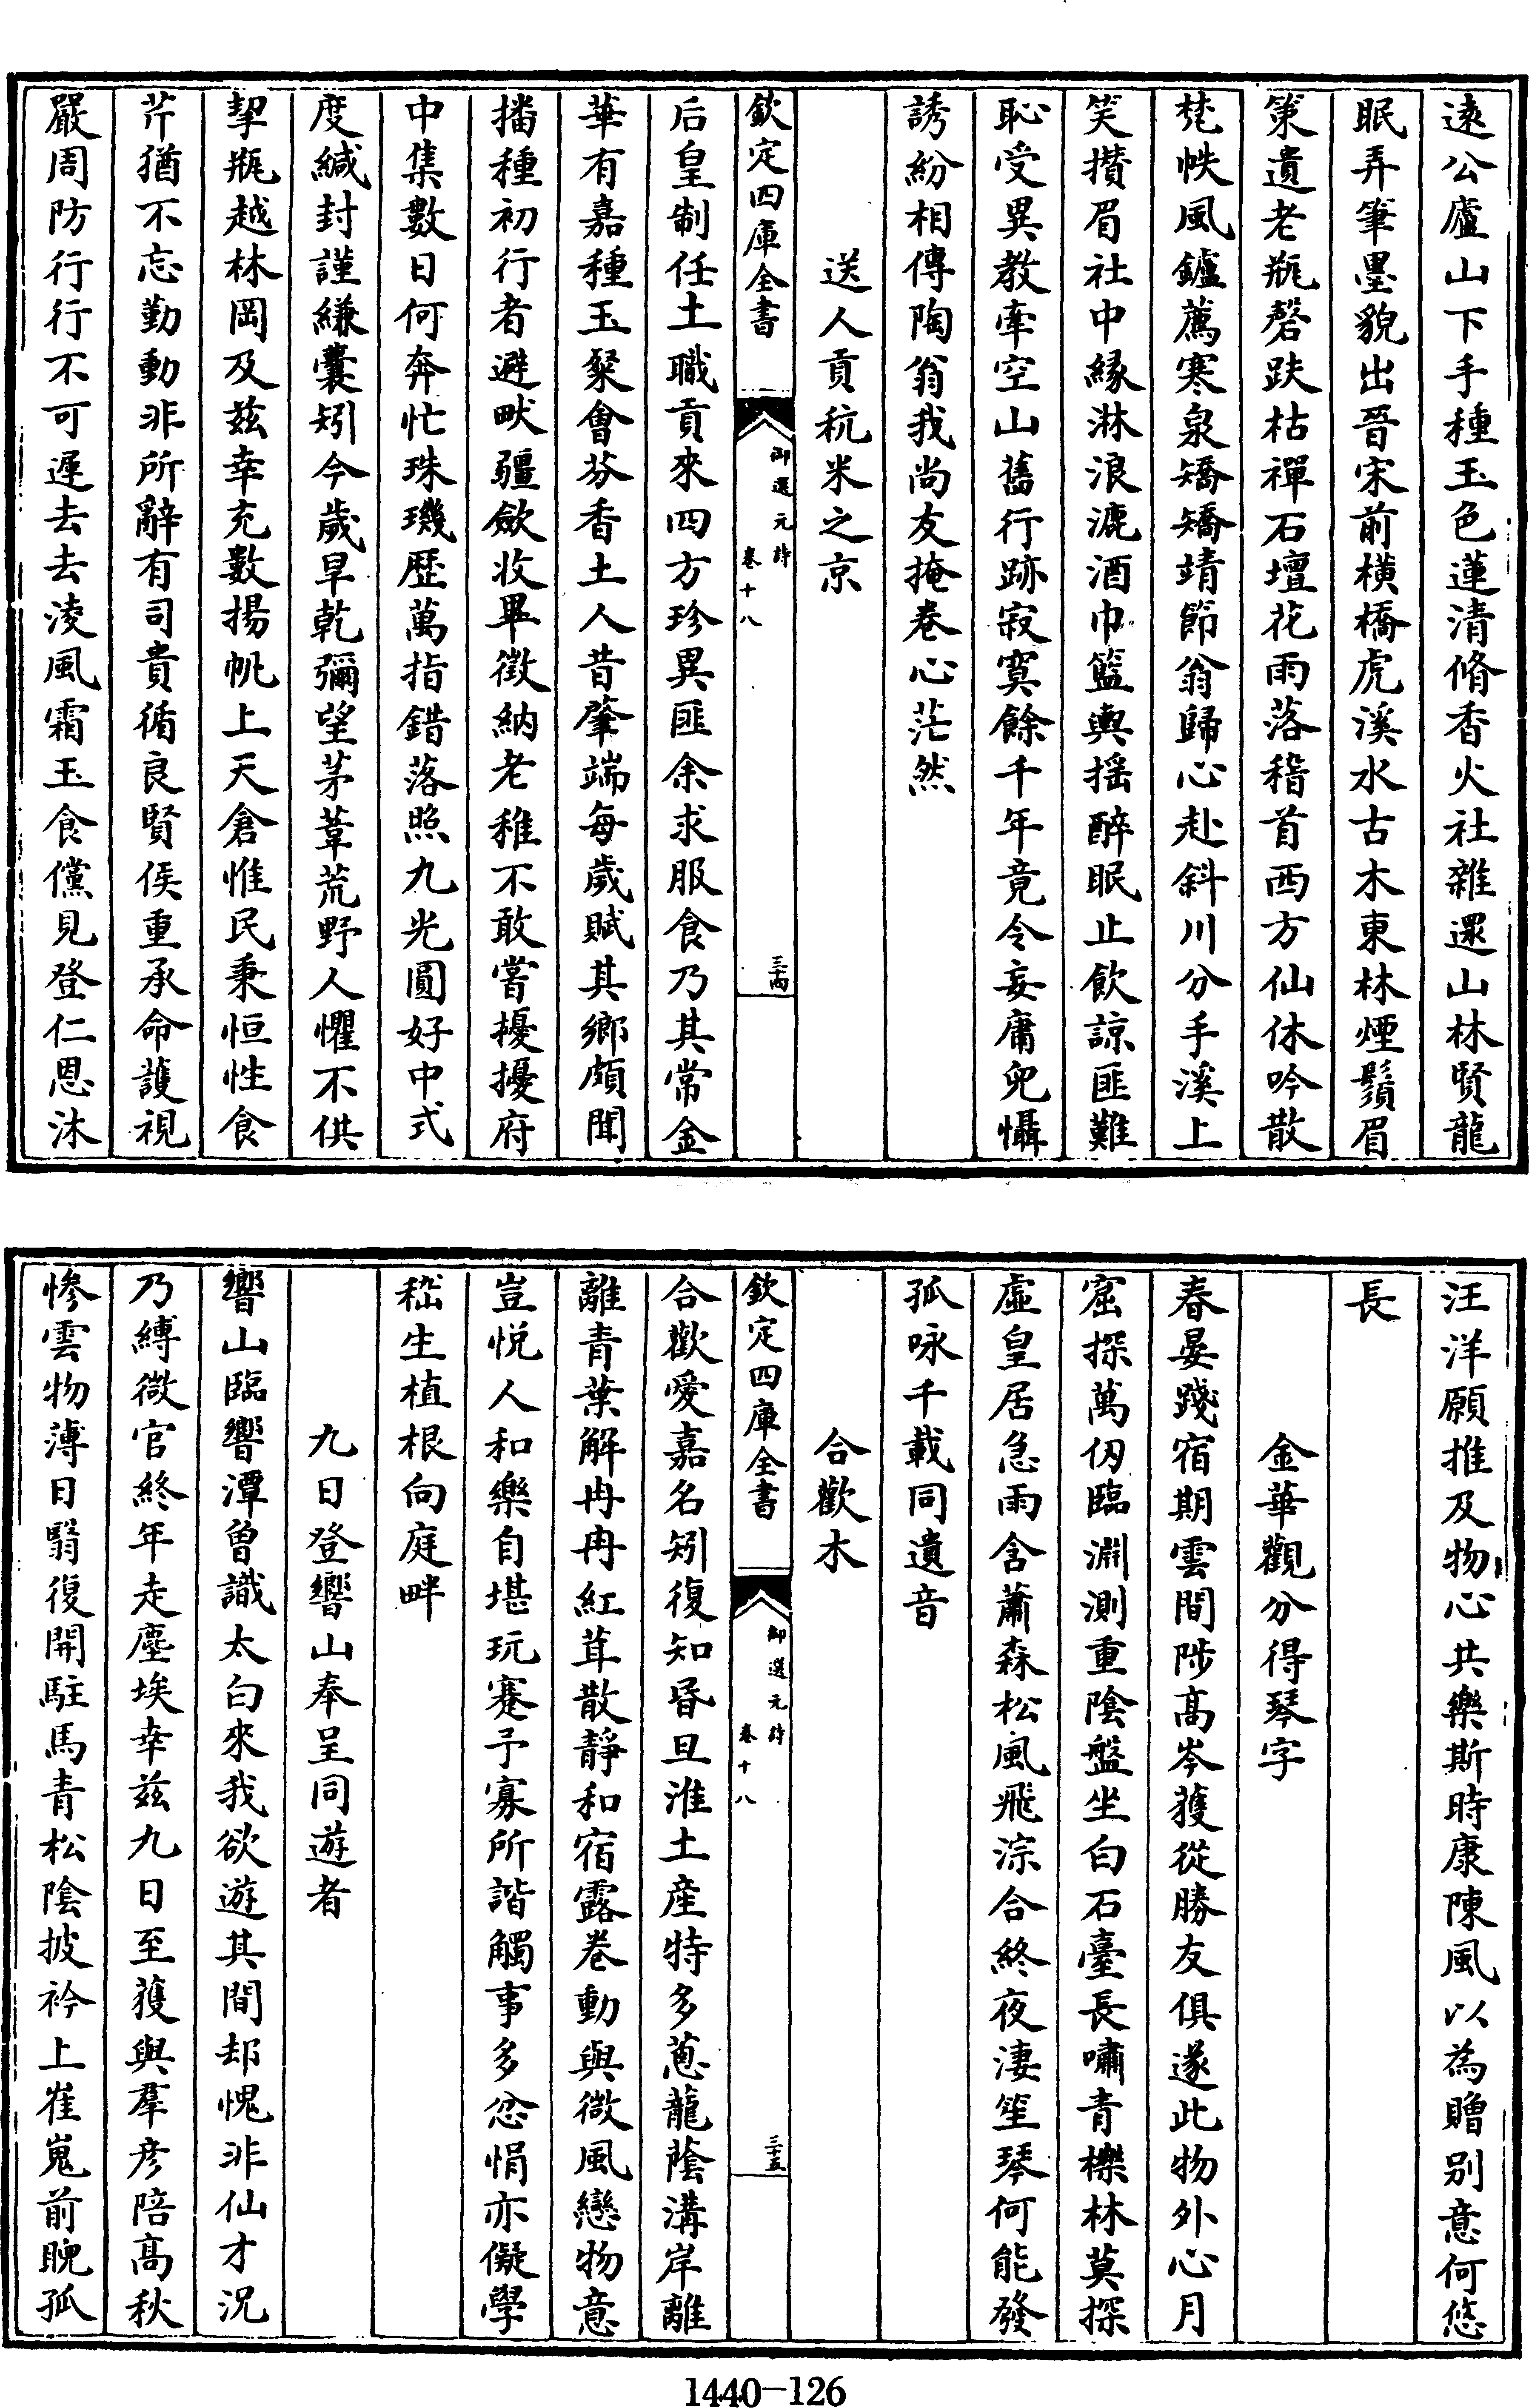 遠公廬山下手種玉色蓮清脩香火社雜還山林賢龍
眠弄筆墨貌出晉宋前横橋虎溪水古木東林煙鬚眉
策遺老瓶磬趺枯禪石壇花雨落稽首西方仙休吟散
梵帙風鑪薦寒泉矯矯靖節翁歸心赴斜川分手溪上
笑攅眉社中縁淋浪漉酒巾籃輿揺醉眠止飲諒匪難
恥受異教牽空山舊行跡寂寞餘千年竟令妄庸兒懾
誘紛相傳陶翁我尚友掩卷心茫然
送人貢秔米之京
欽定四庫全書
御選元詩
卷十八
三十四
后皇制任土職貢來四方珍異匪余求服食乃其常金
華有嘉種玉粲會芬香土人昔肇端每歲賦其鄉頗聞
播種初行者避畎疆斂收畢徴納老稚不敢嘗擾擾府
中集數日何奔忙珠璣歴萬指錯落照九光圓好中式
度緘封謹縑囊矧今歲旱乾彌望茅葦荒野人懼不供
挈瓶越林岡及兹幸充數揚帆上天倉惟民秉恒性食
芹猶不忘勤動非所辭有司貴循良賢侯重承命護視
嚴周防行行不可遲去去淩風霜玉食儻見登仁恩沐
汪洋願推及物心共樂斯時康陳風以為贈别意何悠
長
金華觀分得琴字
春晏踐宿期雲間陟髙岑獲從勝友俱遂此物外心月
窟探萬仭臨淵測重陰盤坐白石臺長嘯青櫟林莫探
虛皇居急雨含蕭森松風飛淙合終夜淒笙琴何能發
孤咏千載同遺音
合歡木
欽定四庫全書
御選元詩
卷十八
三十五
合歡愛嘉名矧復知昏旦淮土産特多蔥蘢蔭溝岸離
離青葉解冉冉紅茸散靜和宿露卷動與微風戀物意
豈悦人和樂自堪玩蹇予寡所諧觸事多忿悁亦儗學
嵇生植根向庭畔
九日登響山奉呈同遊者
響山臨響潭曽識太白來我欲遊其間却愧非仙才况
乃縛微官終年走塵埃幸兹九日至獲與羣彦陪髙秋
慘雲物薄日翳復開駐馬青松陰披衿上崔嵬前睨孤
1440-126